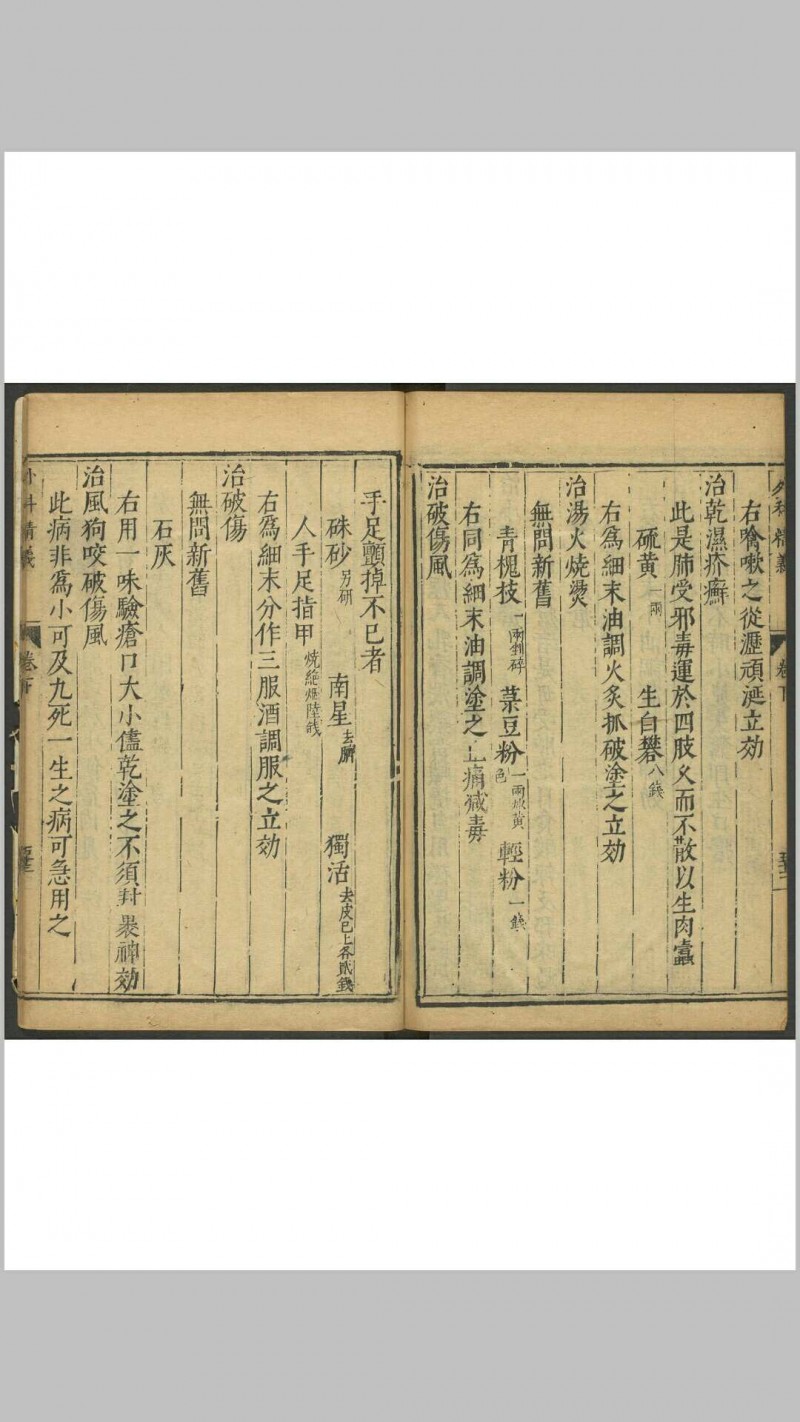 外科精義 卷下
右噙嗽之從瀝頑涎立効
治乾濕疥癬
此是肺受邪毒運於四肢久而不散以生肉蠹
硫黄一兩 生白礬八錢
右爲細末油調火炙抓破塗之立効
治湯火燒燙
無問新舊
青槐枝一兩剉碎 菉豆粉一兩炒黄色 輕粉一錢
右同爲細末油調塗之止痛减毒
治破傷風
手足顫掉不已者
硃砂另研 南星去臍 獨活去皮已上各貳錢
人手足指甲燒絶烟陸錢
右爲細末分作三服酒調服之立効
治破傷
無問新舊
石灰
右用一味驗瘡口大小儘乾塗之不須封裹神効
治風狗咬破傷風
此病非爲小可及九死一生之病可急用之
外科精義 卷下